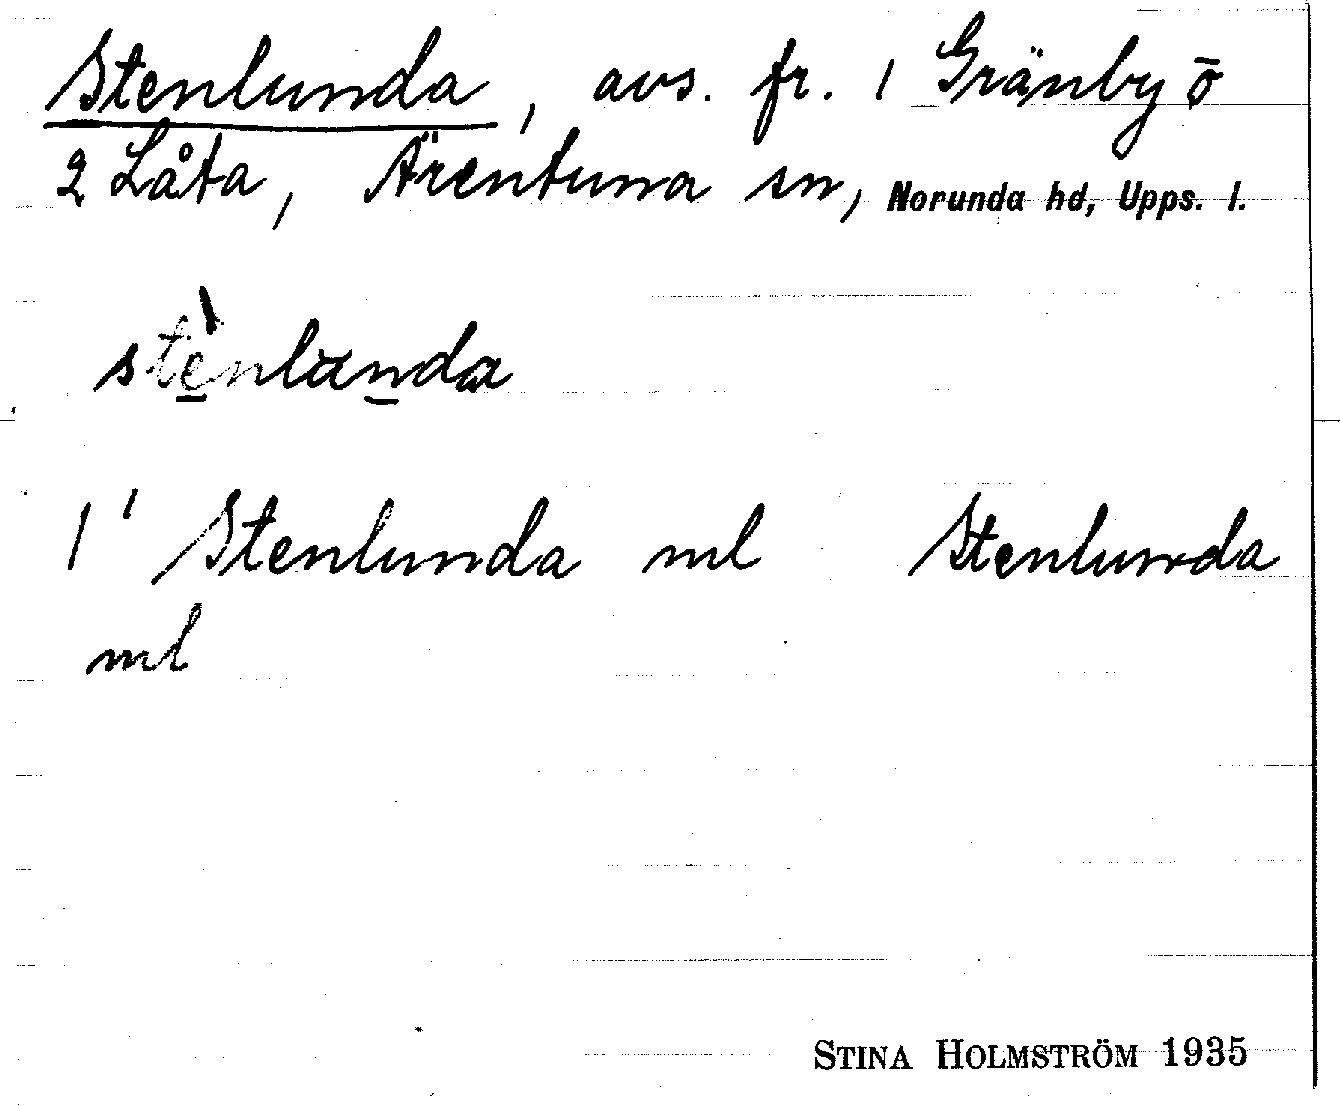 Stenlunda, avs. fr. 1 Gränby ō
2 Låta, Ärentuna sn, Norunda hd, Upps. l.
stènlunda
1' Stenlunda ml Stenlunda
ml
STINA HOLMSTRÖM 1935